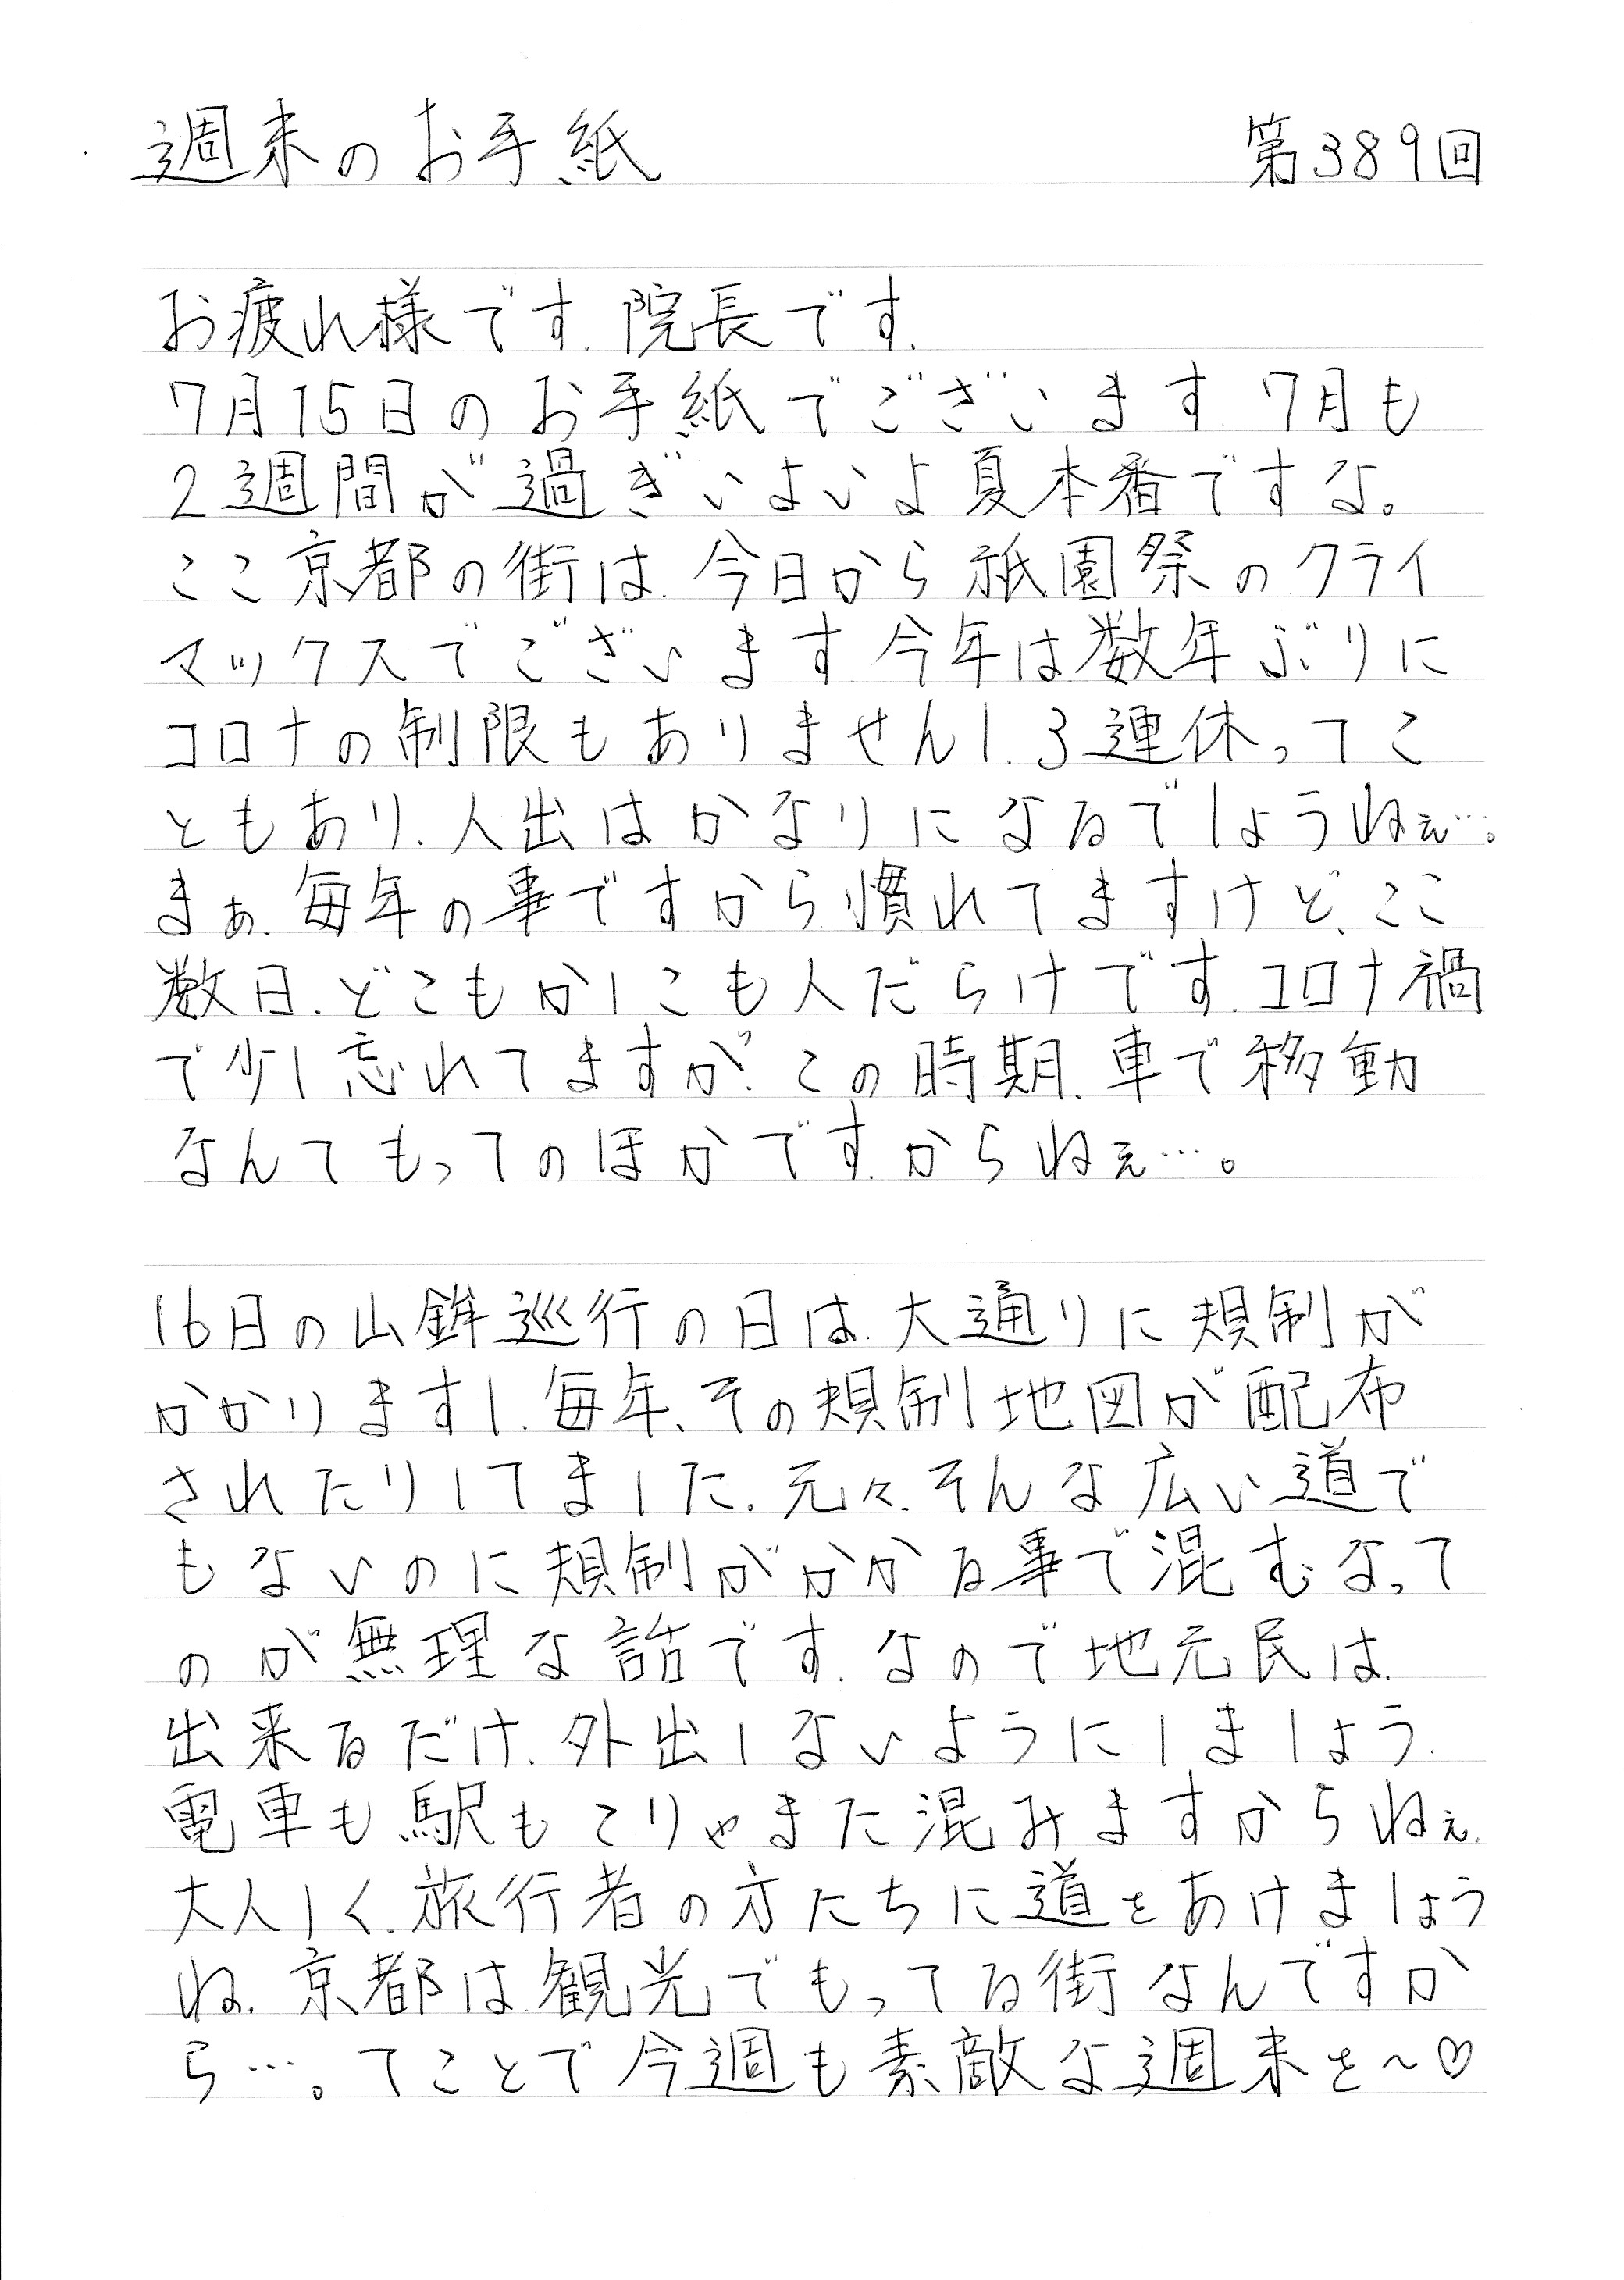 週末のお手紙 第389回
お疲れ様です、院長です、
7月15日のお手紙でございます、7月も
2週間が過ぎいよいよ夏本番ですな。
ここ京都の街は、今日から祇園祭のクライ
マックスでございます、今年は数年ぶりに
コロナの制限もありませんし、3連休ってこ
ともあり、人出はかなりになるでしょうねぇ…。
まぁ、毎年の事ですから慣れてますけど、ここ
数日、どこもかしこも人だらけです、コロナ禍
で少し忘れてますが、この時期、車で移動
なんてもってのほかですからねぇ…。
16日の山鉾巡行の日は、大通りに規制が
かかりますし、毎年、その規制地図が配布
されたりしてました、元々、そんな広い道で
もないのに規制がかかる事で混むなって
のが無理な話です、なので地元民は、
出来るだけ、外出しないようにしましょう、
電車も駅もこりゃまた混みますからねぇ、
大人しく、旅行者の方たちに道をあけましょう
ね、京都は、観光でもってる街なんですか
ら…。てことで今週も素敵な週末を〜♡